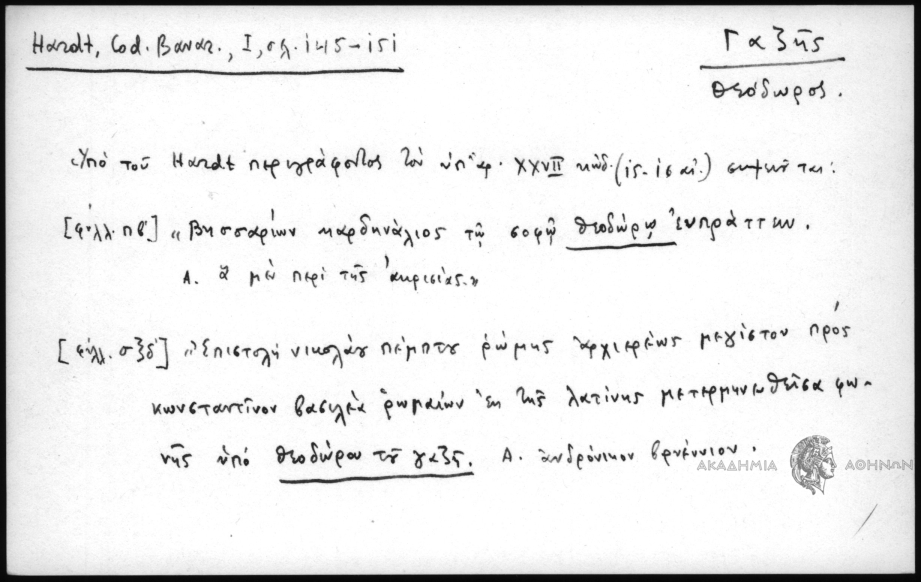 Hardt, Cod. Bavar., I, σλ. 145-151
Γαζῆς
Θεόδωρος.
Ὑπὸ τοῦ Hardt περιγράφοντος τὸν ὑπ' ἀρ. XXVII κώδ. (ις-ις αἰ.)
[φύλλ. πβ'] „Βησσαρίων καρδηνάλιος τῷ σοφῷ Θεοδώρῳ εὐπράττειν.
Α. ἃ μὲν περὶ τῆς ἀκρισίας.»
[φύλλ. σξδ'] „Ἐπιστολὴ νικολάου πέμπτου ῥώμης ἀρχιερέως μεγίστου πρὸς
κωνσταντῖνον βασιλέα ῥωμαίων ἐκ τῆς λατίνης μετερμηνευθεῖσα φω-
νῆς ὑπὸ θεοδώρου τοῦ γαζῆ. Α. ἀνδρόνικον βρυέννιον.
ΑΚΑΔΗΜΙΑ ΑΘΗΝΩΝ